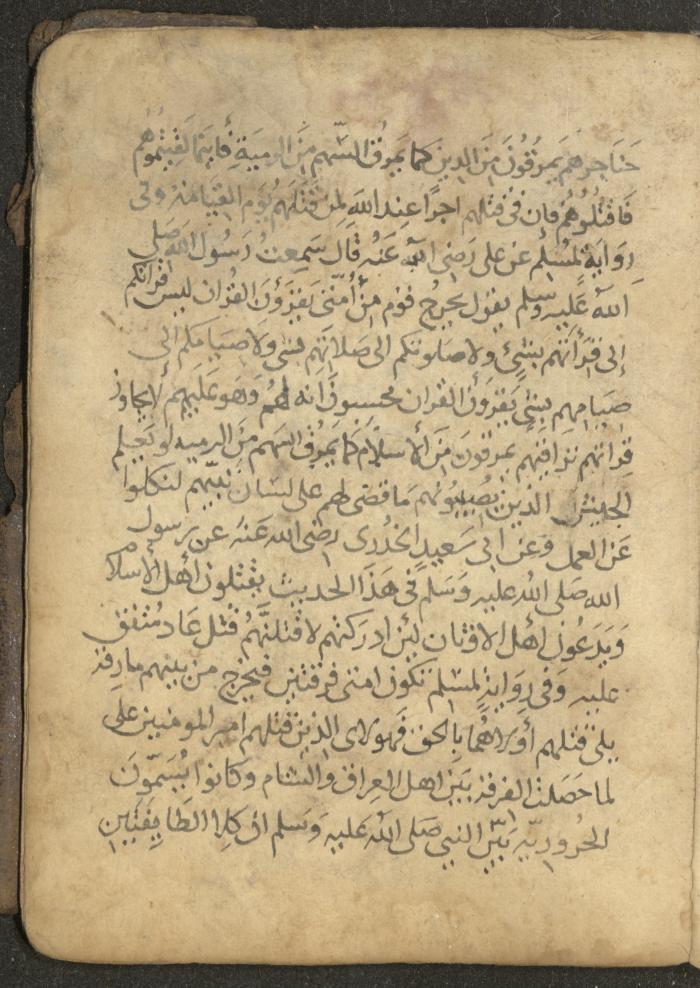 حناجرهم يمرقون من الدين كما يمرق السهم من الرمية فأينما لقيتموهم
فاقتلوهم فإن في قتلهم اجرا عند الله لمن قتلهم يوم القيامة وفى
رواية لمسلم عن على رضى الله عنه قال سمعت رسول الله صلى
الله عليه وسلم يقول يخرج قوم من أمتى يقرؤن القران ليس قرانكم
إلى قرأتهم بشئ ولا صلوتكم الى صلاتهم بشى ولا صيامكم الى
صيامهم بشئ يقرؤن القران يحسبون انه لهم وهو عليهم لا يجاوز
قراتهم تراقيهم يمرقون من الأسلام كما يمرق السهم من الرمية لو يعلم
الجيش الذين يصيبونهم ما قضى لهم على لسان نبيهم لنكلوا
عن العمل وعن ابى سعيد الخدرى رضى الله عنه عن رسول
الله صلى الله عليه وسلم في هذا الحديث يقتلون أهل الأسلام
ويدعون اهل الاوثان لين ادركتهم لاقتلنهم قتل عاد متفق
عليه وفى رواية لمسلم تكون امتى فرقتين فيخرج من بينهم مارقة
يلى قتلهم أولاهما بالحق فهولاى الذين قتلهم امير المومنين على
لما حصلت الفرقة بين اهل العراق والشام وكانوا يسمون
الحرورية بين النبى صلى الله عليه وسلم ان كلا الطايفتين